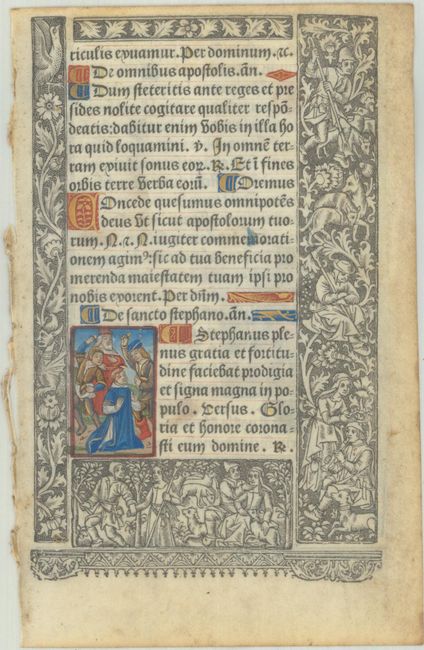 riculis exuamur. Per dominum. ⁊c.
De omnibus apostolis. añ.
Dum steteritis ante reges et pre
sides nolite cogitare qualiter respõ
deatis: dabitur enim vobis in illa ho
ra quid loquamini. v̄. In omnẽ ter
ram exivit sonus eoꝝ. R̄. Et ĩ fines
orbis terre verba eorũ. Oremus
Concede quesumus omnipotẽs
deus vt sicut apostolorum tuo
rum. N. ⁊. N. iugiter commemorati
onem agimꝰ: sic ad tua beneficia pro
merenda maiestatem tuam ipsi pro
nobis exorent. Per dñm.
De sancto stephano. añ.
Stephanus ple
nus gratia et fortitu
dine faciebat prodigia
et signa magna in po
pulo. Versus. Glo
ria et honore corona
sti eum domine. R̄.